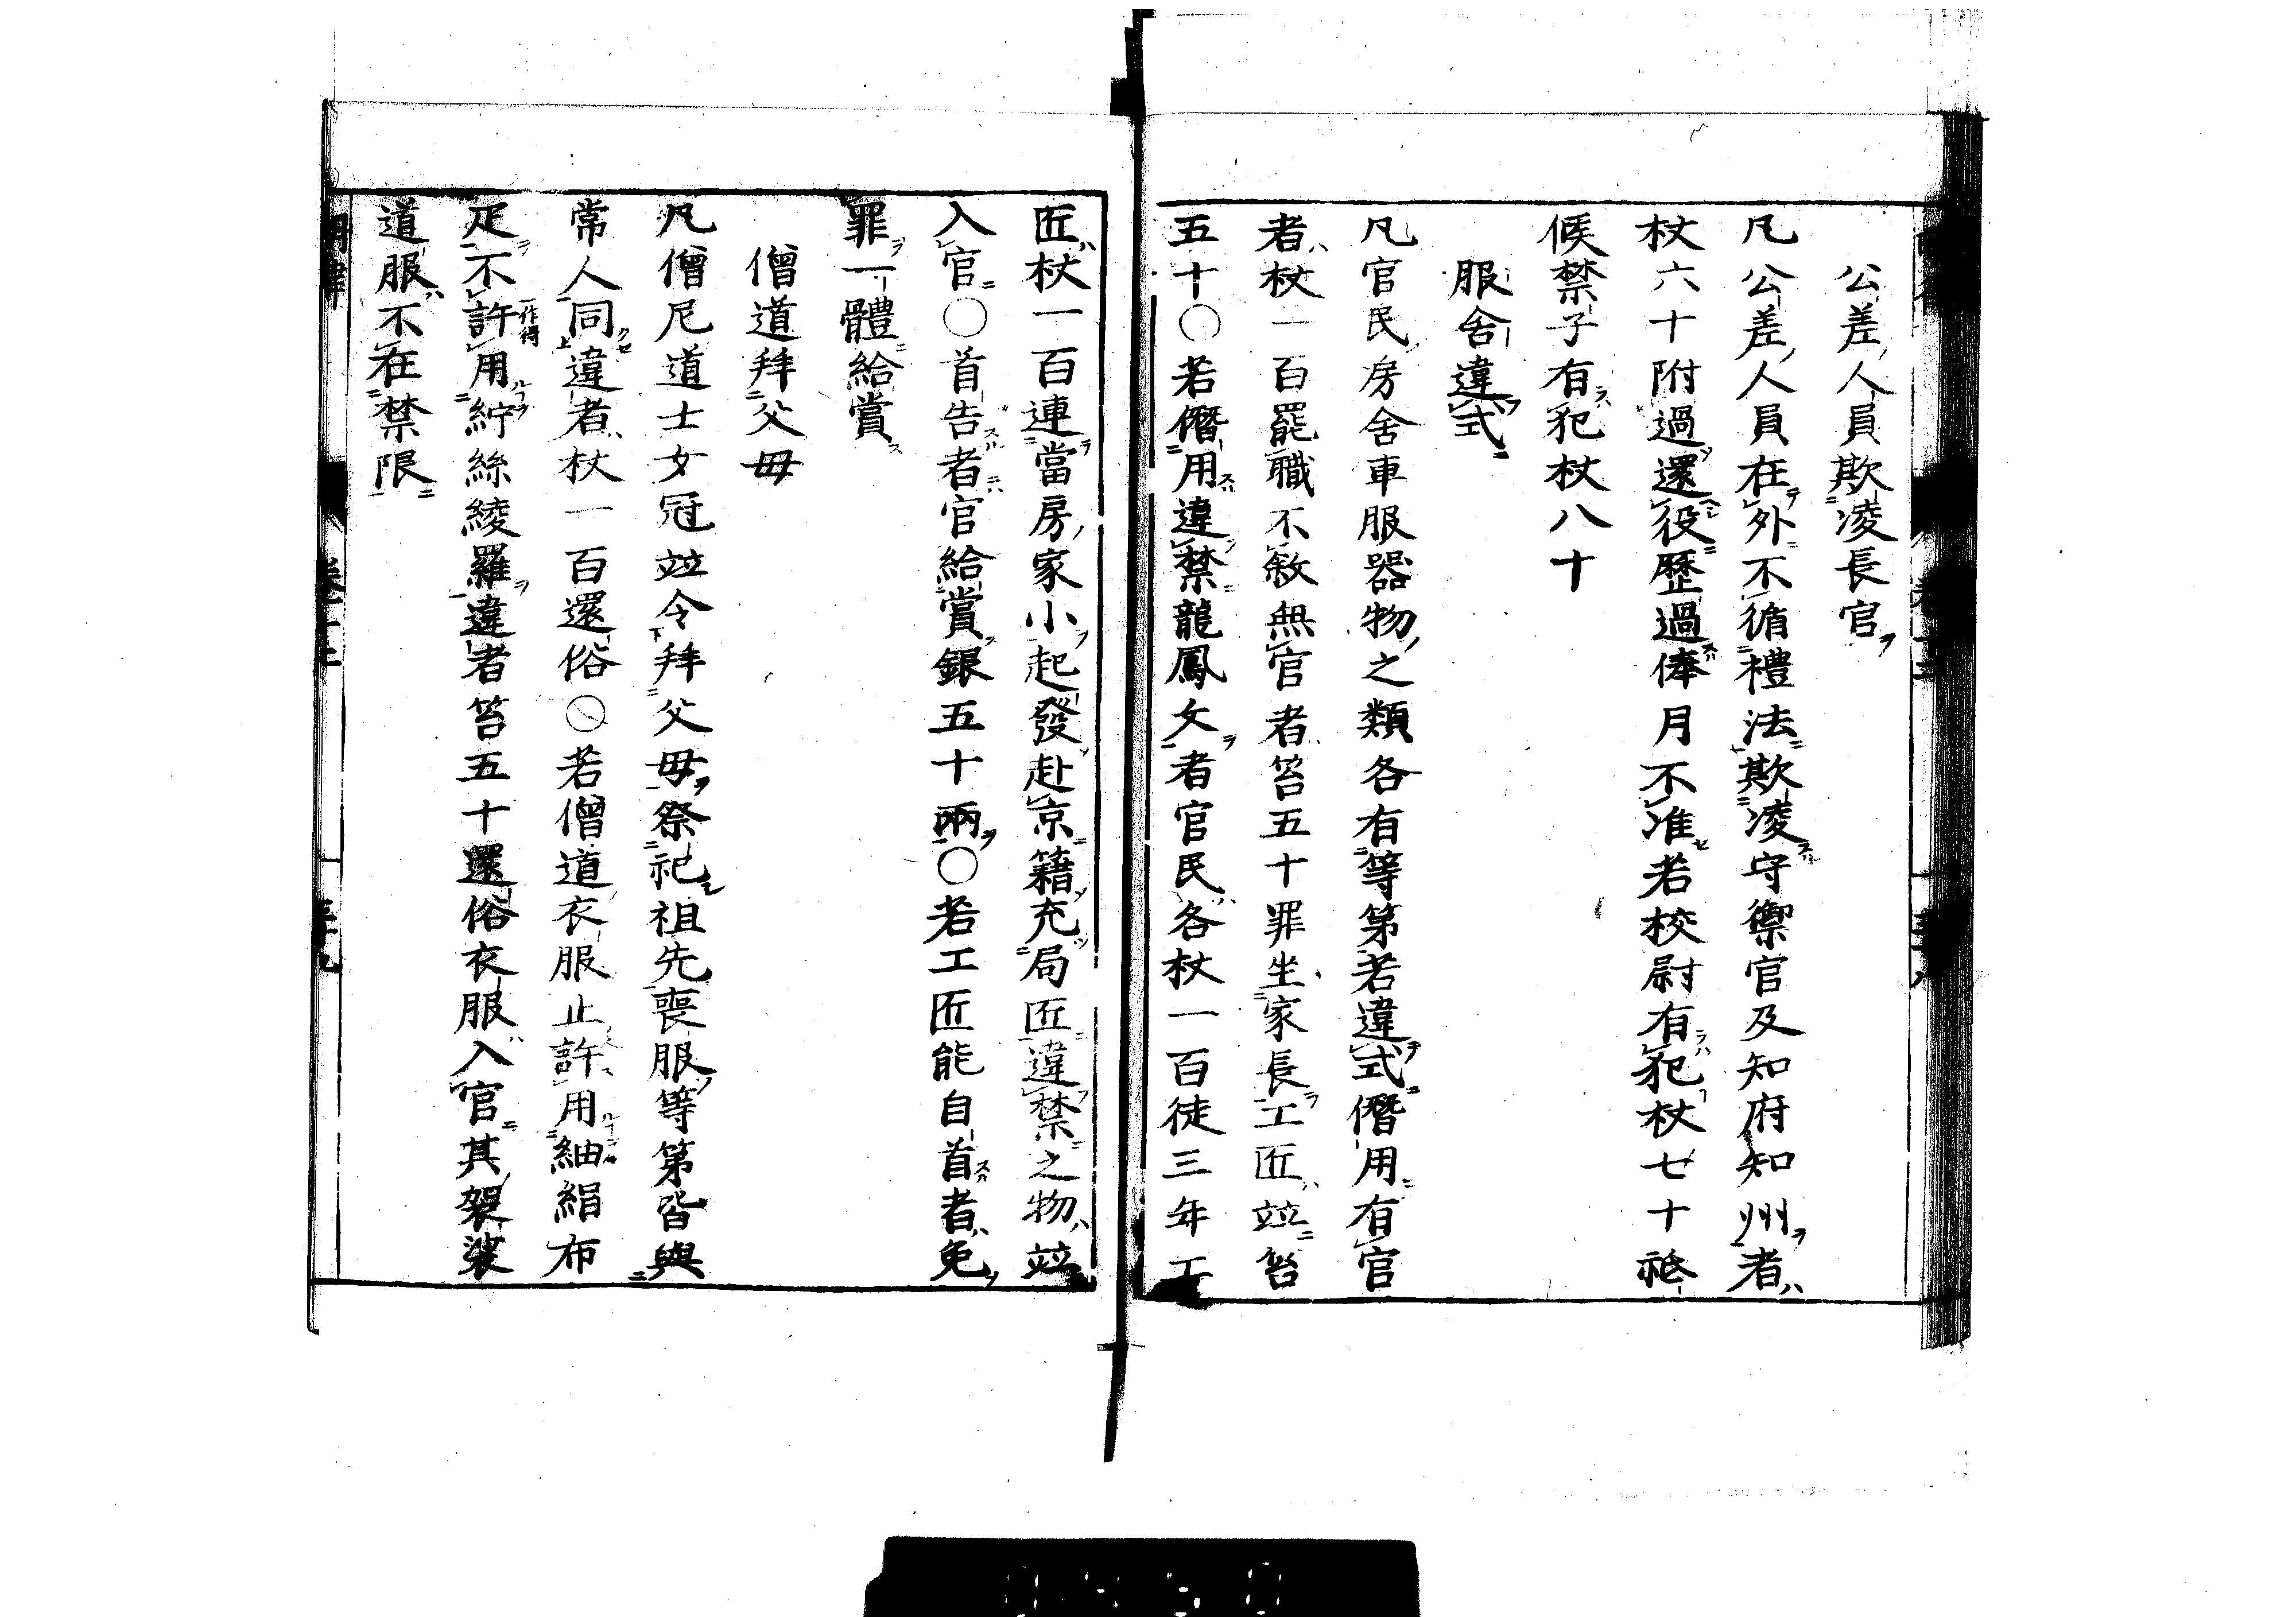 公差人員欺凌長官
凡公差人員在外不循禮法欺凌守禦官及知府知州者
杖六十附過還役歷過俸月不准若校尉有犯杖七十祗
候禁子有犯杖八十
服舍違式
凡官民房舍車服器物之類各有等第若違式僭用有官
者杖一百罷職不敘無官者笞五十罪坐家長工匠竝笞
五十○若僭用違禁龍鳳文者官民各杖一百徒三年工
匠杖一百連當房家小起發赴京籍充局匠違禁之物竝
入官○首告者官給賞銀五十兩○若工匠能自首者免
罪一體給賞
僧道拜父母
凡僧尼道士女冠竝令拜父母祭祀祖先喪服等第皆與
常人同違者杖一百還俗○若僧道衣服止許用紬絹布
疋不許一作得用紵絲綾羅違者笞五十還俗衣服入官其袈裟
道服不在禁限